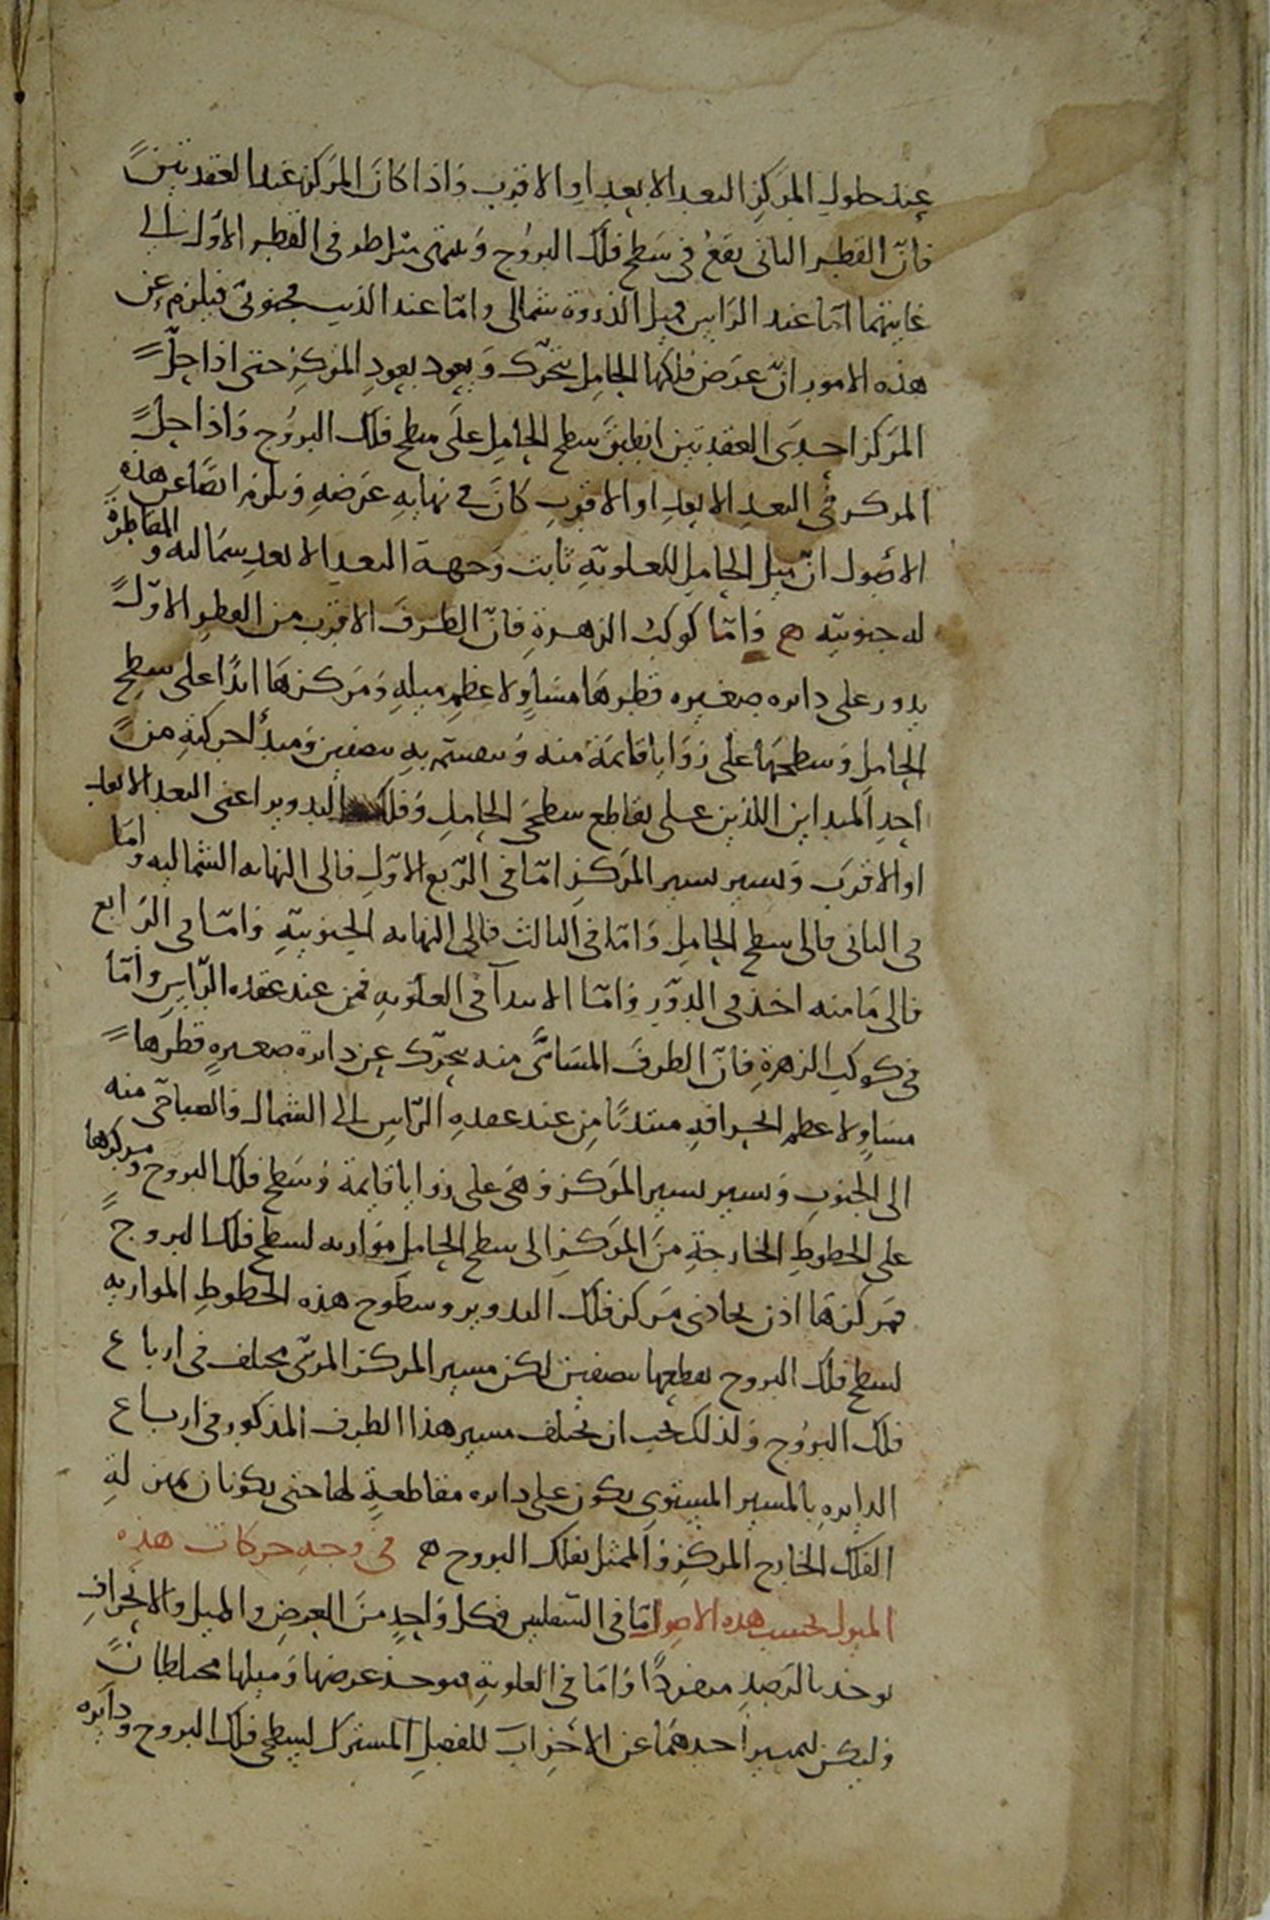 عند حلول المركز البعد الابعد او الاقرب واذا كان المركز عند العقدتين
فان القطر الثانى يقع فى سطح فلك البروج ويسمى فى القطر الاول الى
غايتهما اما عند الراس فميل الذروة شمالى واما عند الذنب فجنوبى فيلزم عن
هذه الامور ان عرض فلكها الحامل يتحرك ويعود بعود المركز حتى اذا حل
المركز احدى العقدتين انطبق سطح الحامل على سطح فلك البروج واذا حل
المركز فى البعد الابعد او الاقرب كان فى نهاية عرضه ويلزم ايضا عن هذه
الاصول ان ميل الحامل للعلوية ثابت وجهة البعد الابعد شمالية والمقاطرة
له جنوبية ه واما كوكب الزهرة فان الطرف الاقرب من القطر الاول
يدور على دايره صغيره قطرها مساو لاعظم ميله ومركزها ابدا على سطح
الحامل وسطحها على زوايا قايمة منه وينقسم به بنصفين ومبدأ حركته من
احد المبداين اللذين على تقاطع سطحى الحامل وفلك التدوير اعنى البعد الابعد
او الاقرب ويسير بسير المركز اما فى الربع الاول فالى النهاية الشمالية واما
فى الثانى فالى سطح الحامل واما فى الثالث فالى النهاية الجنوبية واما فى الرابع
فالى ما منه اخذ فى الدور واما الابتدآ فى العلوية فمن عند عقدة الراس واما
فى كوكب الزهرة فان الطرف المسائى منه يتحرك عن دايرة صغيرة قطرها
مساو لاعظم انحرافه مبتدئا من عند عقدة الراس الى الشمال والصباحى منه
الى الجنوب ويسير بسير المركز وهى على زوايا قايمة وسطح فلك البروج ومركزها
على الخطوط الخارجة من المركز الى سطح الحامل موازية لسطح فلك البروج
فمركزها اذن يحاذى مركز فلك التدوير وسطوح هذه الخطوط الموازية
لسطح فلك البروج يقطعها بنصفين لكن مسير المركز المرئى مختلف فى ارباع
فلك البروج ولذلك يجب ان يختلف مسير هذا الطرف المذكور فى ارباع
الدايره بالمسير المستوى يكون على دايره مقاطعة لها حتى يكونان بمنزلة
الفلك الخارج المركز والممثل بفلك البروج ه فى وجه حركات هذه
الميول بحسب هذه الاصول اما فى السفليين فكل واحد من العرض والميل والانحراف
يوخذ بالرصد مفردا واما فى العلوية فيوخذ عرضها وميلها مختلطان
وليكن لتمييز احدهما عن الاخر ا ب للفصل المشترك لسطحى فلك البروج ودايره